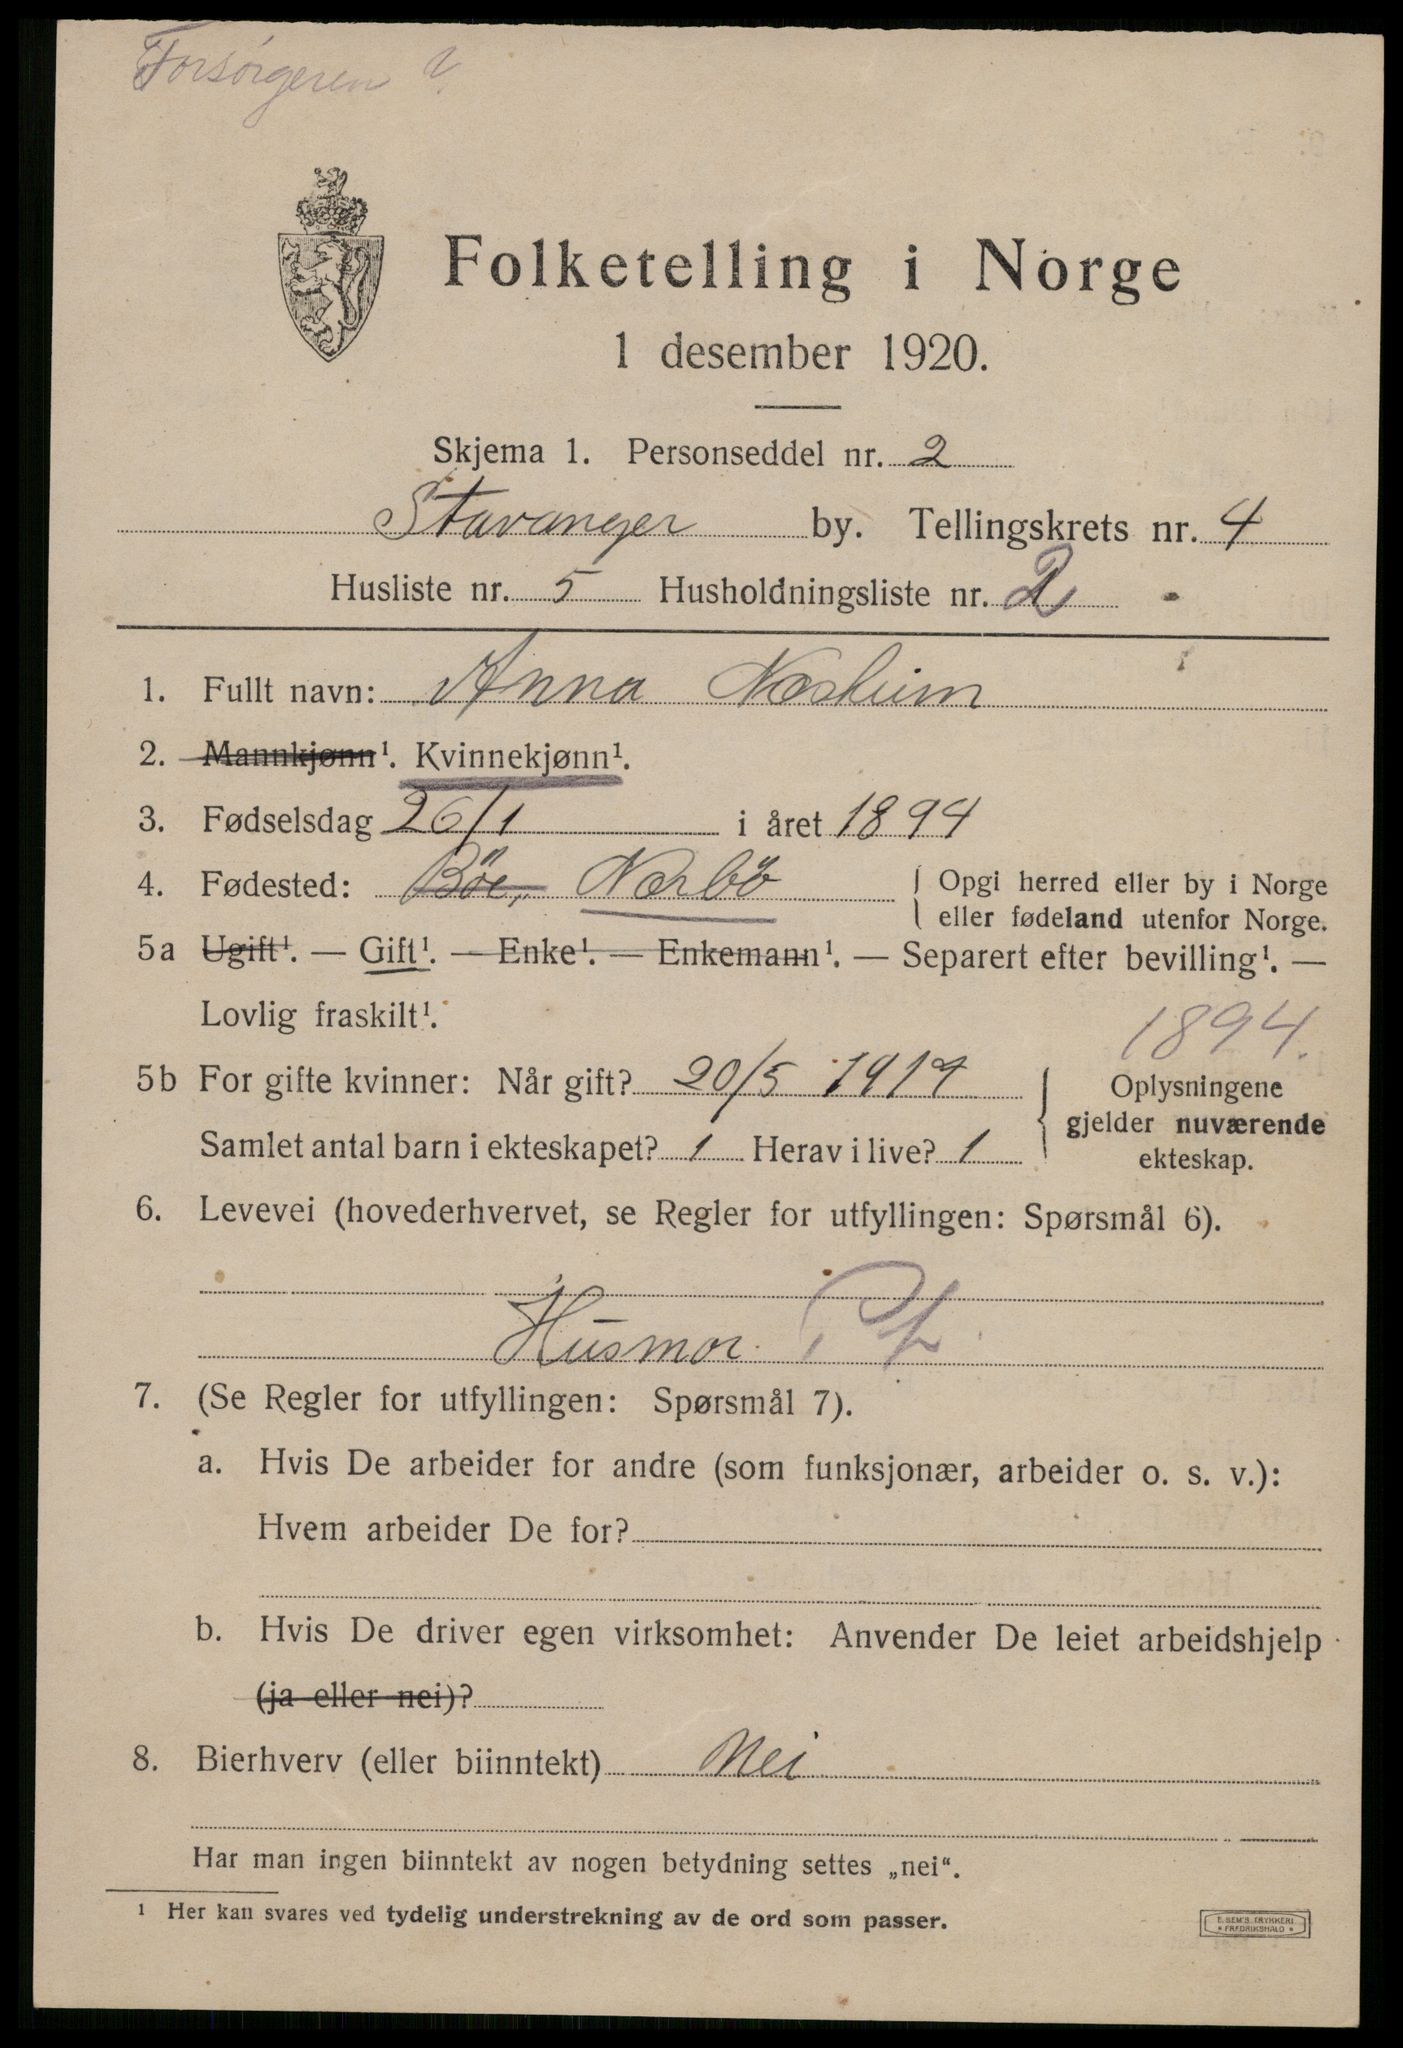 Forsørgeren
Folketelling i Norge
1 desember 1920.
Skjema 1. Personseddel nr. 2
Stavanger by. Tellingskrets nr. 4
Husliste nr. 5 Husholdningsliste nr. 2
1. Fullt navn: Anna Næsheim
2. Mannkjønn¹. Kvinnekjønn¹.
3. Fødselsdag 26/1 i året 1894
4. Fødested: Böe, Nærbö { Opgi herred eller by i Norge
eller fødeland utenfor Norge.
5a Ugift¹. — Gift¹. — Enke¹. — Enkemann¹. — Separert efter bevilling¹. —
Lovlig fraskilt¹.
1894.
5b For gifte kvinner: Når gift? 20/5 1919
Samlet antal barn i ekteskapet? 1 Herav i live? 1
Oplysningene
gjelder nuværende
ekteskap.
6. Levevei (hovederhvervet, se Regler for utfyllingen: Spørsmål 6).
Husmor
7. (Se Regler for utfyllingen: Spørsmål 7).
a. Hvis De arbeider for andre (som funksjonær, arbeider o. s. v.):
Hvem arbeider De for?
b. Hvis De driver egen virksomhet: Anvender De leiet arbeidshjelp
(ja eller nei)?
8. Bierhverv (eller biinntekt) Nei
Har man ingen biinntekt av nogen betydning settes „nei“.
¹ Her kan svares ved tydelig understrekning av de ord som passer.
E. SEM'S TRYKKERI
* FREDRIKSHALD *